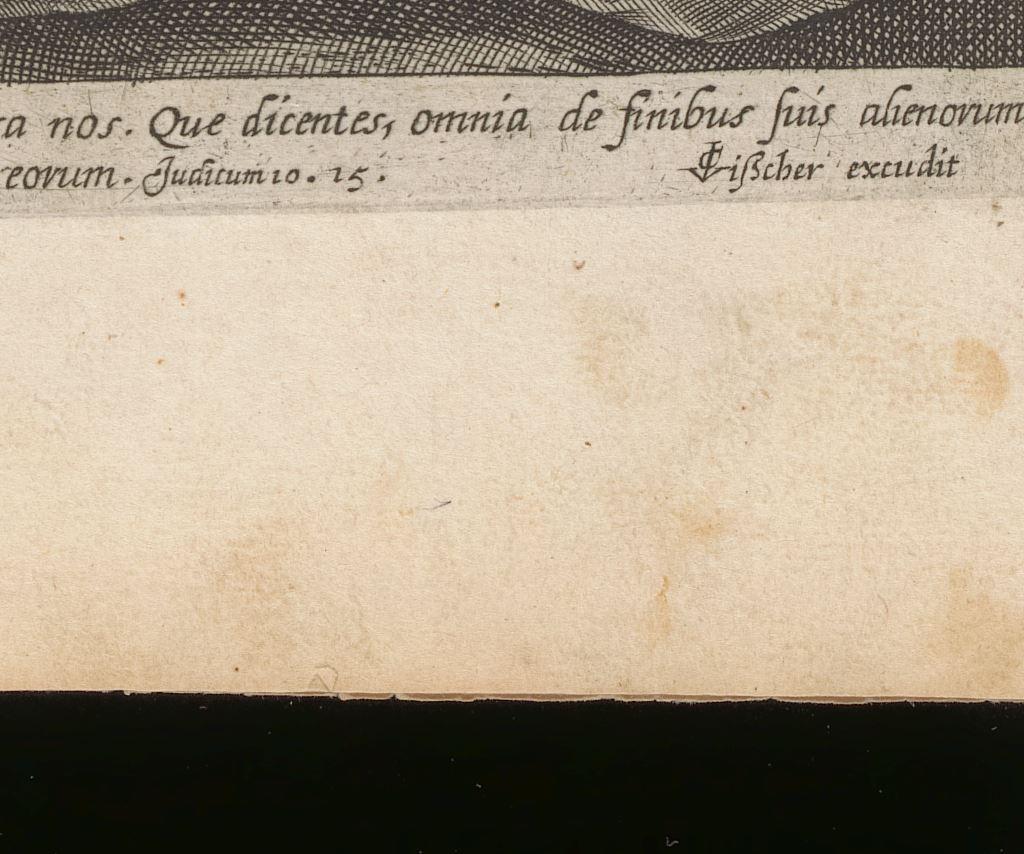 ra nos. Que dicentes, omnia de finibus suis alienorum
eorum. Judicum 10. 15. CVisscher excudit